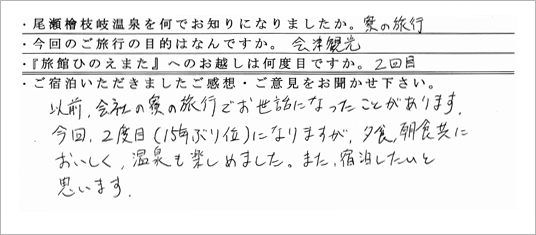 ・尾瀬檜枝岐温泉を何でお知りになりましたか。寮の旅行
・今回のご旅行の目的はなんですか。会津観光
・『旅館ひのえまた』へのお越しは何度目ですか。2回目
・ご宿泊いただきましたご感想・ご意見をお聞かせ下さい。
以前、会社の寮の旅行でお世話になったことがあります。
今回、2度目(15年ぶり位)になりますが、夕食、朝食共に
おいしく、温泉も楽しめました。また、宿泊したいと
思います。